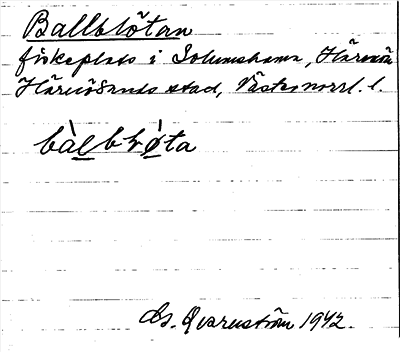 Ballblötan
fiskeplats i Solumshamn, Härnön
Härnösands stad, Västernorrl. l.
bàlblǿta
Gs. Qvarnström 1942.